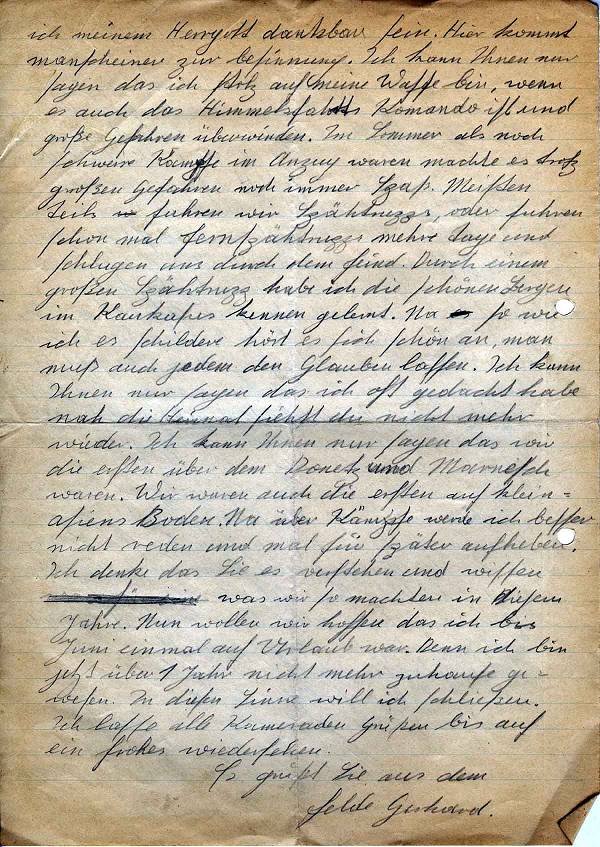 ich meinem Herrgott dankbar sein. Hier kommt
manscheiner zur besinnung. Ich kann Ihnen nur
sagen das ich stolz auf meine Waffe bin, wenn
es auch das Himmelsfahrts Komando ist und
große Gefahren überwinden. Im Sommer als noch
schwere Kämpfe im Anzug waren machte es trotz
großen Gefahren noch immer Spaß. Meisten
teils fuhren wir Spähtrupps, oder fuhren
schon mal fernspähtrupps mehre tage und
schlugen uns durch dem feind. Durch einem
großen Spähtrupp habe ich die schönen Bergen
im Kaukasus kennen gelernt. Na so wie
ich es schildere hört es sich schön an, man
muß auch jedem den Glauben lassen. Ich kann
Ihnen nur sagen das ich oft gedacht habe
nah die Heimat siehst du nicht mehr
wieder. Ich kann Ihnen nur sagen das wir
die ersten über dem Donetz und
waren. Wir waren auch die ersten auf klein=
asiens Boden. Na über Kämpfe werde ich besser
nicht reden und mal für später aufheben.
Ich denke das Sie es verstehen und wissen
was wir so machten in diesem
Jahre. Nun wollen wir hoffen das ich bis
Juni einmal auf Urlaub war. Denn ich bin
jetzt über 1 Jahr nicht mehr zuhause ge=
wesen. In diesen Sinne will ich schließen.
Ich lasse alle Kameraden Grüßen bis auf
ein frohes wiedersehen.
Es grüßt Sie aus dem
felde Gerhard.